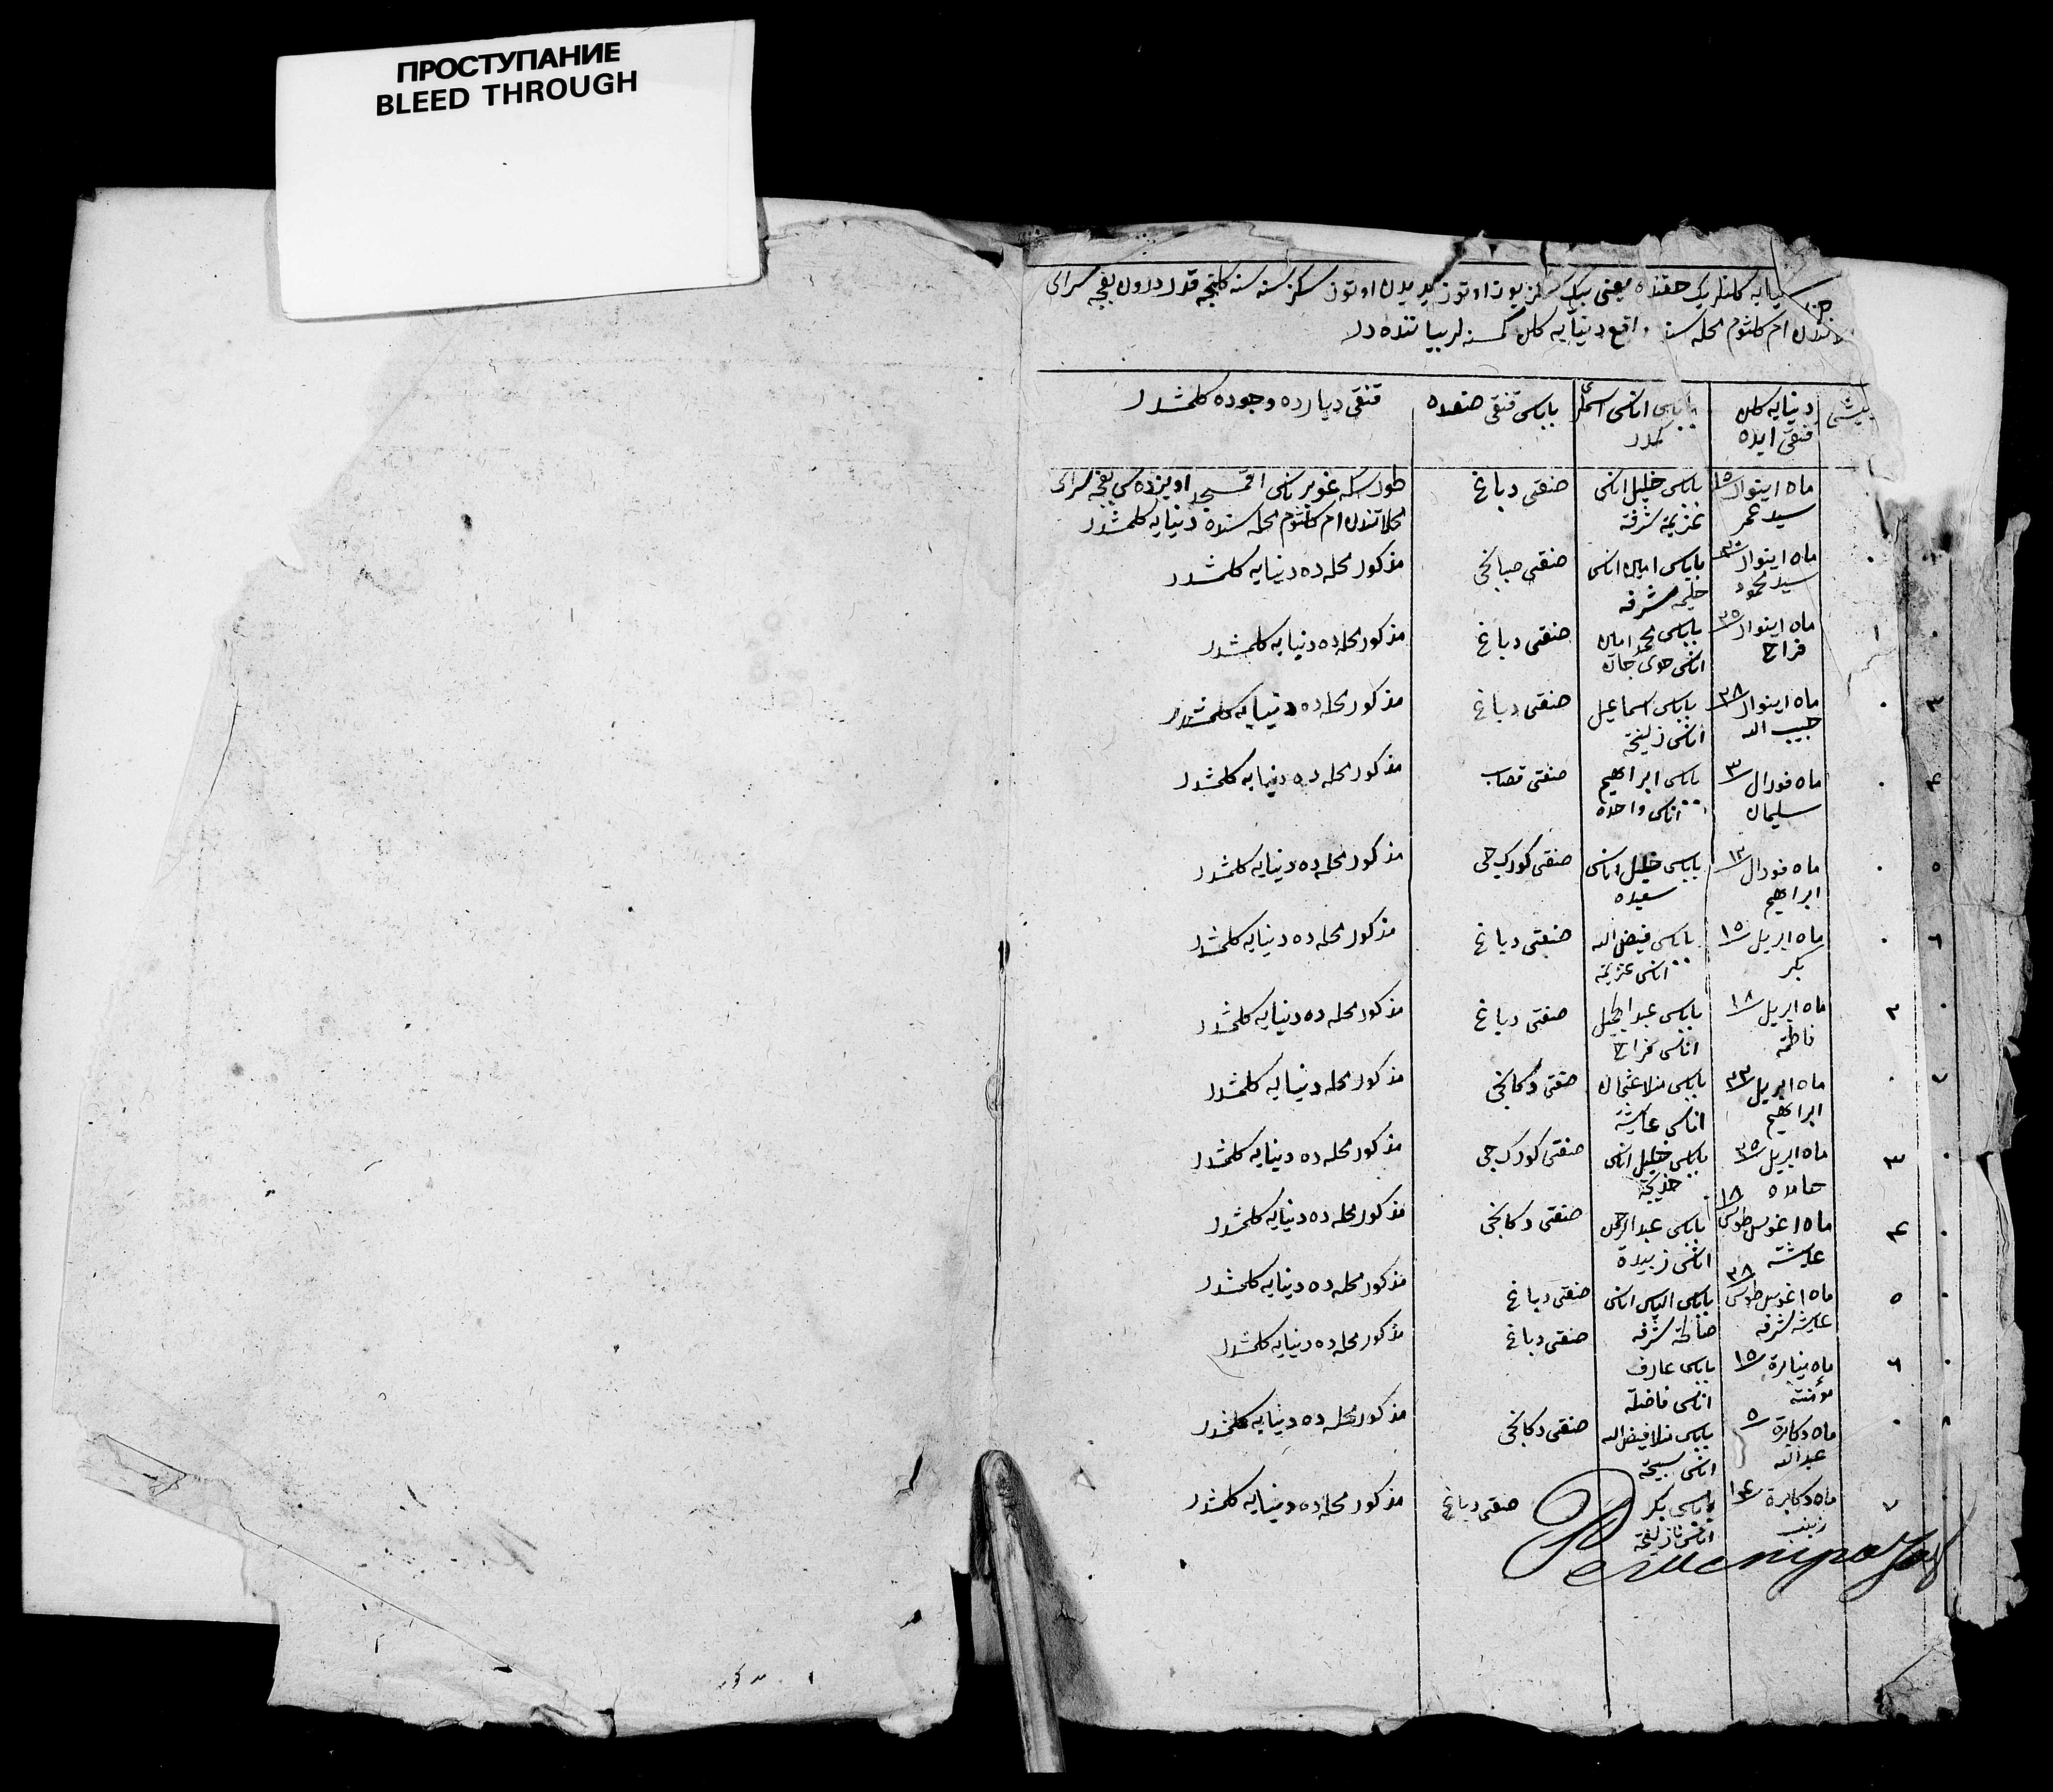 ПРОСТУПАНИЕ
BLEED THROUGH
دنیایه کلنلریك حقنده یعنی بیك سکز یوز اوتوز یدیدن اوتوز سکز سنه سنه کلنجه قدر درون بغچه سرای
ام کلثوم محله سنده واقع دنیایه کلن کمسنه لر بیاننده در
دنیایه کلن
قنقی ایده
باباسی اناسی اسملری
کیمدر
باباسی قنقی صنعده
قنقی دیارده وجوده کلمشدر
ماه اینوار ١٥
سید عمر
باباسی خلیل اناسی
عزیمه شرفه
صنقی دباغ
طورسکه غوبرناسی اقمسجد اویزده سی بغچه سرای
محلاتندن ام کلثوم محله سنده دنیایه کلمشدر
ماه اینوار
سید محمود
باباسی امین اناسی
حلیمه شرفه
صنقی صبانجی
مذکور محله ده دنیایه کلمشدر
١
ماه اینوار ٢٥
فراح
باباسی محمد امین
اناسی حوی جان
صنقی دباغ
مذکور محله ده دنیایه کلمشدر
٣
ماه اینوار ٢٨
حبیب الله
باباسی اسماعیل
اناسی زلیخه
صنقی دباغ
مذکور محله ده دنیایه کلمشدر
٤
ماه فورال ٣
سلیمان
باباسی ابراهیم
اناسی واحده
صنقی قصاب
مذکور محله ده دنیایه کلمشدر
٥
ماه فورال ١٢
ابراهیم
باباسی خلیل اناسی
سعیده
صنقی کورك جی
مذکور محله ده دنیایه کلمشدر
٦
ماه اپریل ١٥
بکر
باباسی فیض الله
اناسی عزیمه
صنقی دباغ
مذکور محله ده دنیایه کلمشدر
٢
ماه اپریل ١٨
فاطمه
باباسی عبد الجلیل
اناسی فراح
صنقی دباغ
مذکور محله ده دنیایه کلمشدر
٧
ماه اپریل ٢٣
ابراهیم
باباسی منلا عثمان
اناسی عایشه
صنقی دکانجی
مذکور محله دنیایه کلمشدر
٣
ماه اپریل ٢٥
حامده
باباسی خلیل اناسی
خدیجه
صنقی کورك جی
مذکور محله ده دنیایه کلمشدر
٤
ماه اغوسطوس ١٨
عایشه
باباسی عبد الرحمن
اناسی زبیده
صنقی دکانجی
مذکور محله ده دنیایه کلمشدر
٥
ماه اغوسطوس ٢٨
عایشه شرفه
باباسی الیاس اناسی
شرفه
صنقی دباغ
مذکور محله ده دنیایه کلمشدر
٦
ماه ١٥
مؤمنه
باباسی عارف
اناسی فاضله
صنقی دباغ
مذکور محله ده دنیایه کلمشدر
٨
ماه دکابره ٥
عبد الله
باباسی منلا فیض الله
اناسی
صنقی دکانجی
مذکور محله ده دنیایه کلمشدر
٧
ماه دکابره ١٤
زینب
باباسی بکر
اناسی زلیخه
صنقی دباغ
مذکور محله ده دنیایه کلمشدر